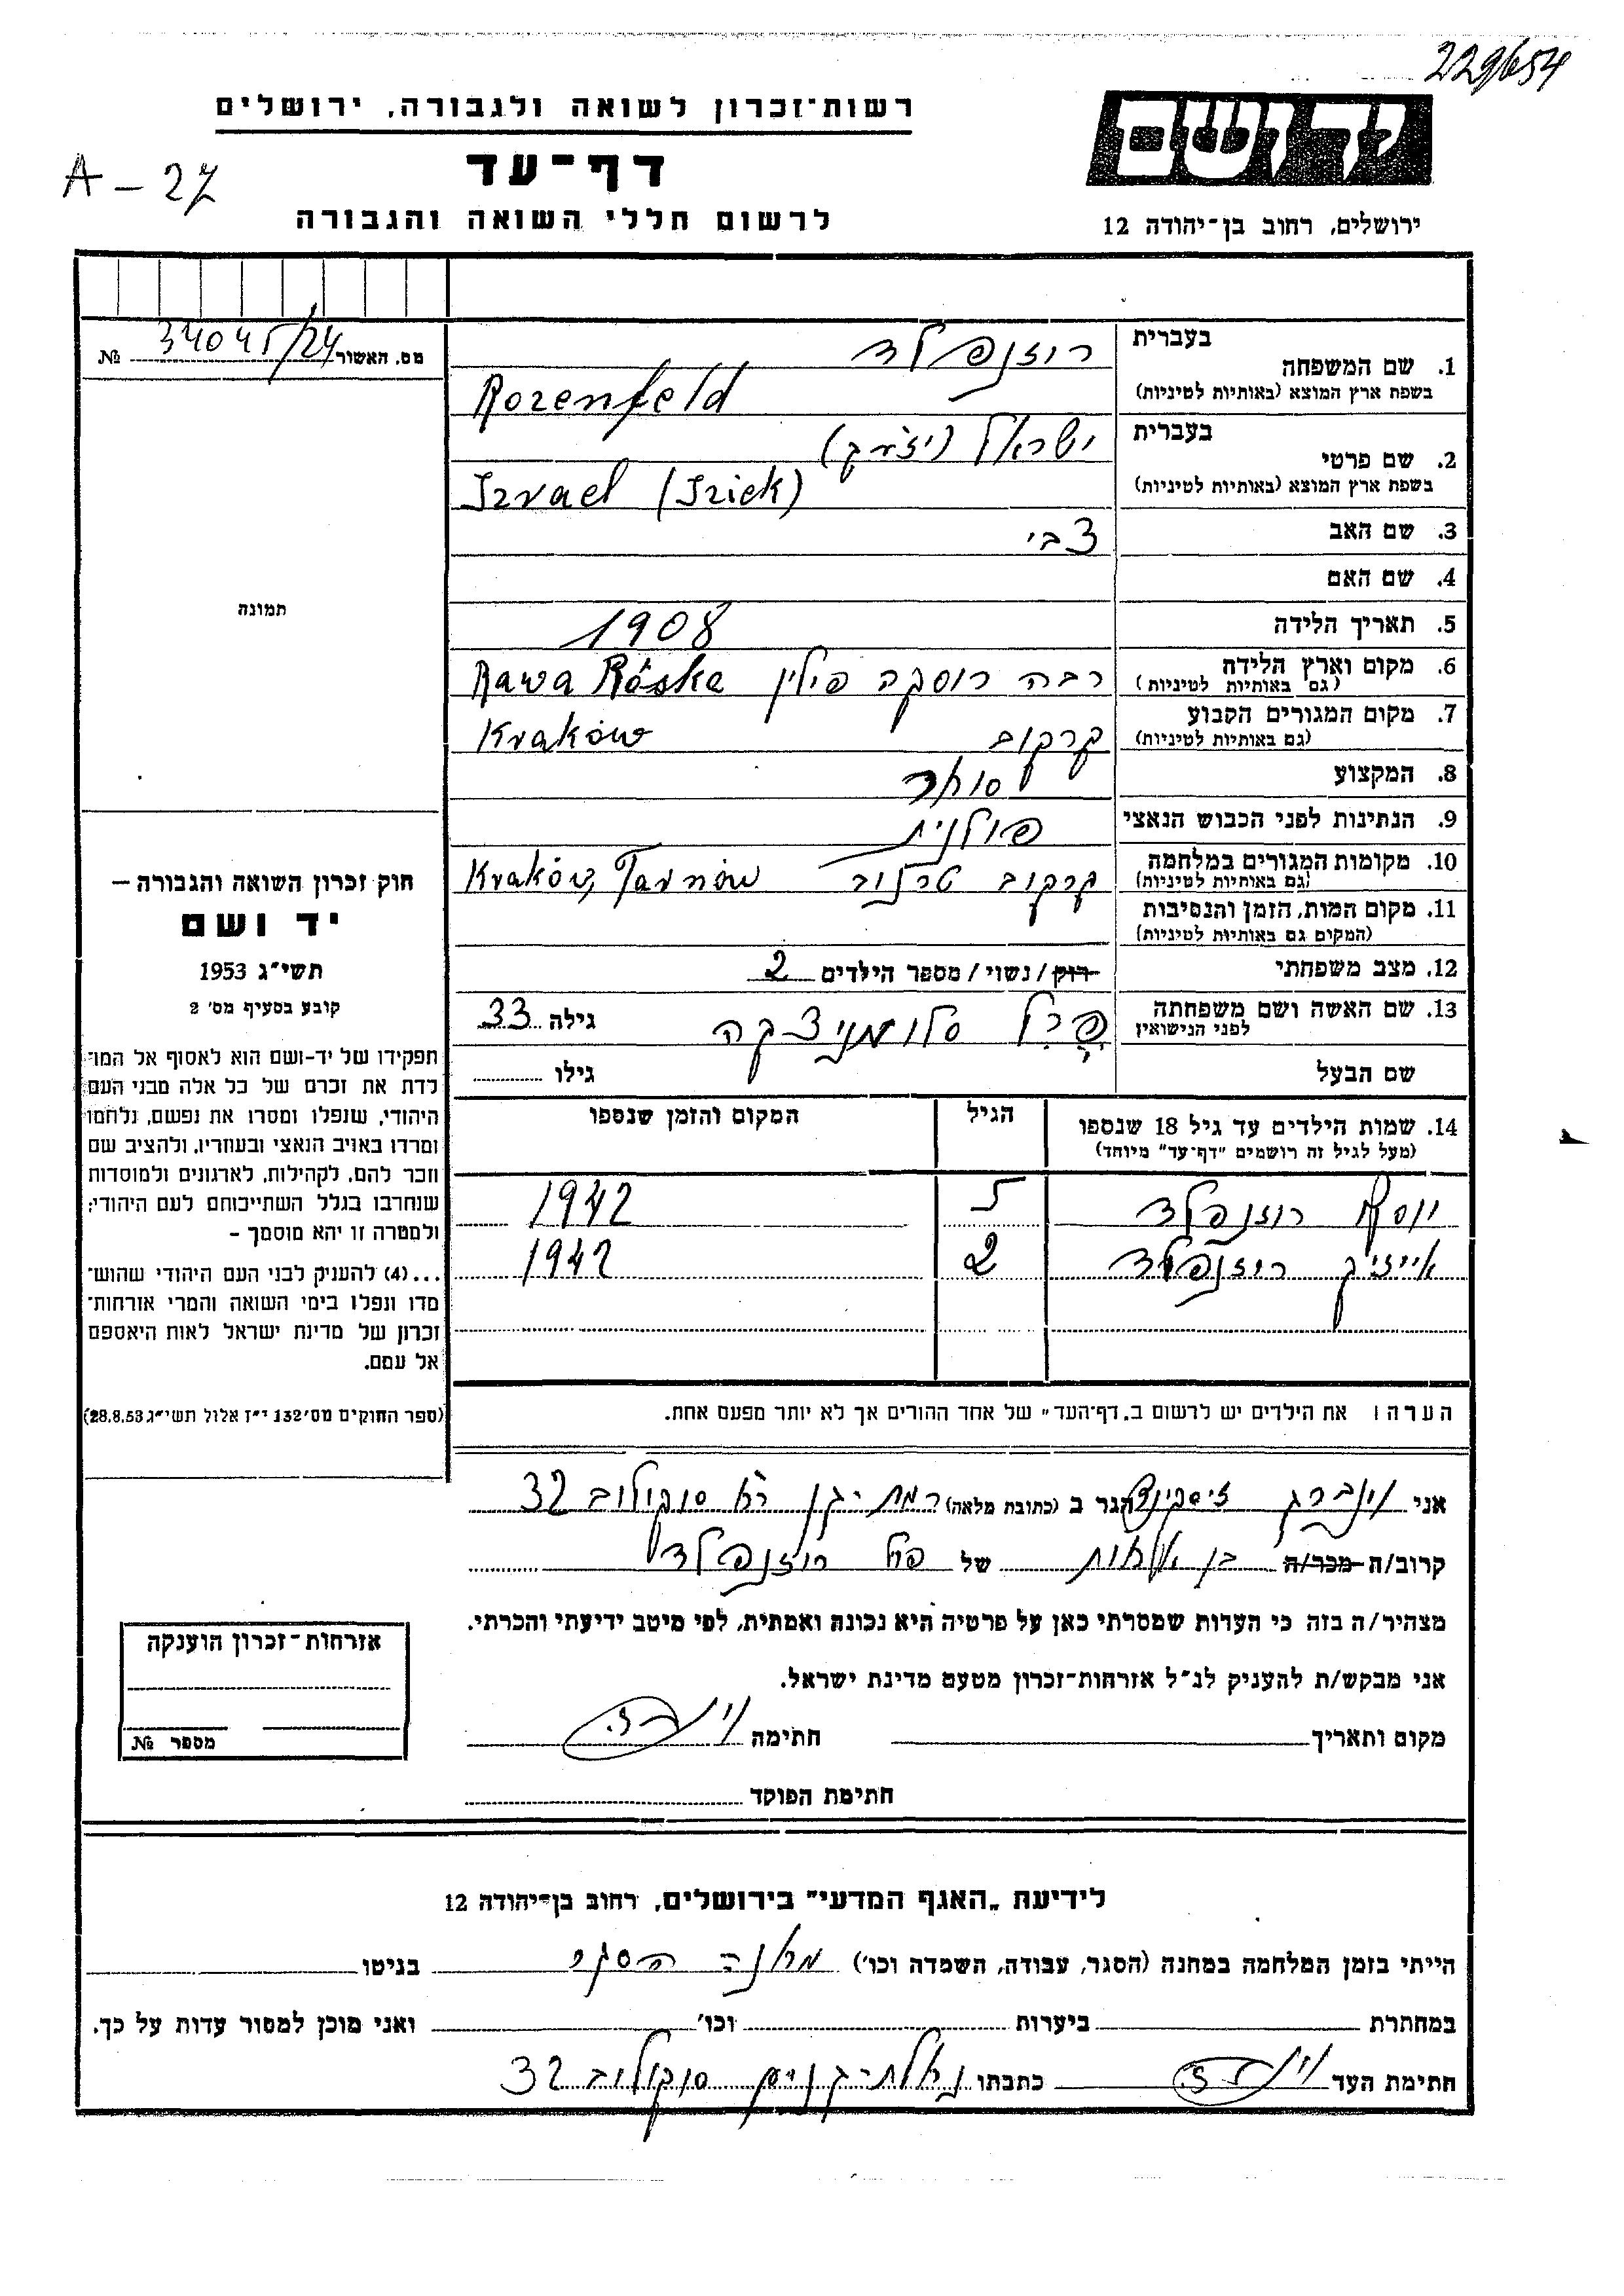 229654
רשות־זכרון לשואה ולגבורה, ירושלים
יד ושם
דף־עד
A - 27
לרשום חללי השואה והגבורה
ירושלים, רחוב בן־יהודה 12
מס. האשור 34045/24 №
בעברית רוזנפלד
1. שם המשפחה
בשפת ארץ המוצא (באותיות לטיניות) Rozenfeld
בעברית ישראל
2. שם פרטי
בשפת ארץ המוצא (באותיות לטיניות) Izrael (Iziek)
3. שם האב צבי
4. שם האם
תמונה
5. תאריך הלידה 1908
6. מקום וארץ הלידה רבה רוסקה פולין Rawa Róska
(גם באותיות לטיניות)
7. מקום המגורים הקבוע קרקוב Kraków
(גם באותיות לטיניות)
8. המקצוע סוחר
9. הנתינות לפני הכבוש הנאצי פולנית
10. מקומות המגורים במלחמה קרקוב טרנוב Kraków, Tarnów
(גם באותיות לטיניות)
11. מקום המות, הזמן והנסיבות
(המקום גם באותיות לטיניות)
12. מצב משפחתי רווק / נשוי / מספר הילדים 2
13. שם האשה ושם משפחתה פרל סלומניצקה גילה 33
לפני הנישואין
שם הבעל גילו
14. שמות הילדים עד גיל 18 שנספו הגיל המקום והזמן שנספו
(מעל לגיל זה רושמים "דף־עד" מיוחד)
יוסף רוזנפלד 5 1942
אייזיק רוזנפלד 2 1942
חוק זכרון השואה והגבורה —
יד ושם
תשי"ג 1953
קובע בסעיף מס' 2
תפקידו של יד-ושם הוא לאסוף אל המו־
לדת את זכרם של כל אלה מבני העם
היהודי, שנפלו ומסרו את נפשם, נלחמו
ומרדו באויב הנאצי ובעוזריו, ולהציב שם
וזכר להם, לקהילות, לארגונים ולמוסדות
שנחרבו בגלל השתייכותם לעם היהודי;
ולמטרה זו יהא מוסמך –
...(4) להעניק לבני העם היהודי שהוש־
מדו ונפלו בימי השואה והמרי אזרחות־
זכרון של מדינת ישראל לאות היאספם
אל עמם.
(ספר החוקים מס' 132 י"ז אלול תשי"ג 28.8.53)
הערה: את הילדים יש לרשום ב„דף־העד" של אחד ההורים אך לא יותר מפעם אחת.
אני וינברג זיסקינד הגר ב (כתובת מלאה) רמת-גן סוקולוב 32
קרוב/ה מכר/ה בן אחות של פרל רוזנפלד
מצהיר/ה בזה כי העדות שמסרתי כאן על פרטיה היא נכונה ואמתית, לפי מיטב ידיעתי והכרתי.
אני מבקש/ת להעניק לנ"ל אזרחות־זכרון מטעם מדינת ישראל.
מקום ותאריך חתימה
חתימת הפוקד
אזרחות־זכרון הוענקה
מספר №
לידיעת „האגף המדעי" בירושלים, רחוב בן־יהודה 12
הייתי בזמן המלחמה במחנה (הסגר, עבודה, השמדה וכו') מחנה הסגר בגיטו
במחתרת ביערות וכו' ואני מוכן למסור עדות על כך.
חתימת העד כתבתו סוקולוב 32